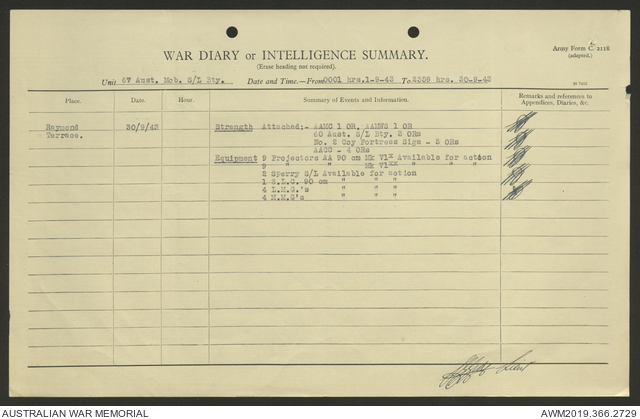 Army Form C. 2118
(adapted.)
WAR DIARY or INTELLIGENCE SUMMARY.
(Erase heading not required).
Unit 67 Aust. Mob. S/L Bty. Date and Time.—From 0001 hrs.1-9-43 To 2359 hrs. 30-9-43
Place. Date. Hour. Summary of Events and Information. Remarks and references to
Appendices, Diaries, &c.
Raymond 30/9/43 Strength Attached:- AAMC 1 OR, AALWS 1 OR
Terrace. 60 Aust. S/L Bty. 2 ORs
No. 2 Coy Fortress Sigs - 3 ORs
AACC - 4 ORs
Equipment 9 Projectors AA 90 cm Mk VIX Available for action
9 " " Mk VIXX " " "
2 Sperry S/L Available for action
1 S.L.C. 90 cm " " "
4 L.M.G.'s " " "
4 M.M.G's " " "
Lieut
AUSTRALIAN WAR MEMORIAL AWM2019.366.2729